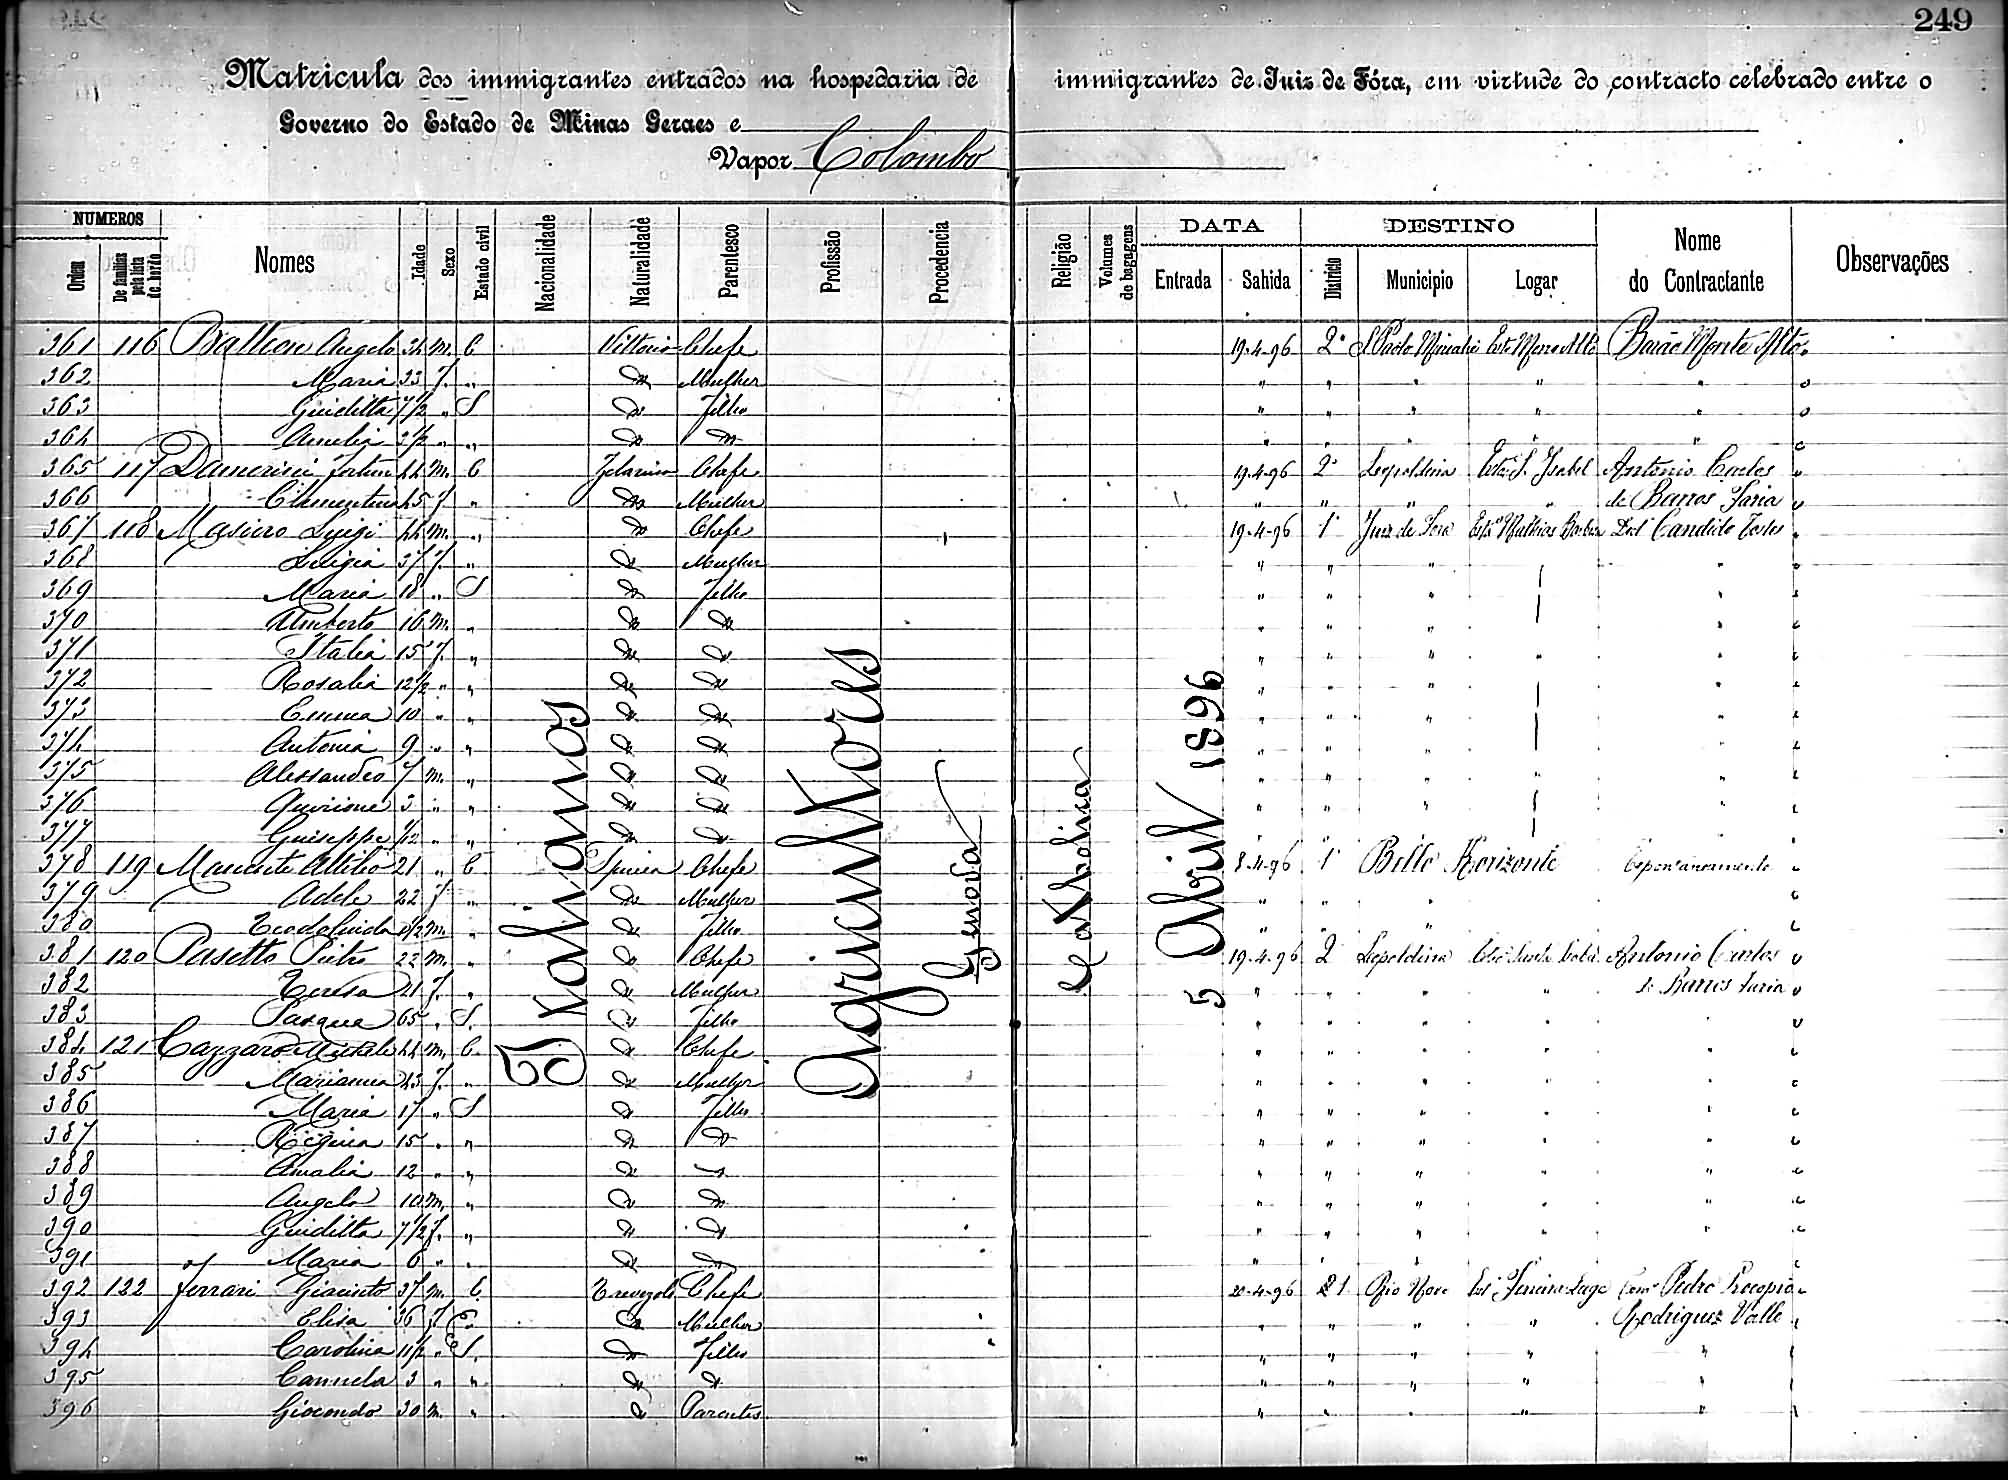 249
Matricula dos immigrantes entrados na hospedaria de immigrantes de Juiz de Fóra, em virtude do contracto celebrado entre o
Governo do Estado de Minas Geraes e
Vapor Colombo
NUMEROS
Ordem
De familias pela lista de bordo
Nomes
Idade
Sexo
Estado civil
Nacionalidade
Naturalidade
Parentesco
Profissão
Procedencia
Religião
Volumes de bagagens
DATA
Entrada
Sahida
DESTINO
Districto
Municipio
Logar
Nome do Contractante
Observações
Italianos
Agricultores
Genova
Catholica
5 Abril 1896
361 116 Angelo 34 m. C Vittorio Chefe 19-4-96 2º Barão Monte Alto
362 Maria 33 f. " Do Mulher " " " " "
363 Giuditta 7 1/2 " S Do Filho " " " " "
364 Amelia 3 1/2 " " Do Do " " " " "
365 117 44 m. C Chefe 19-4-96 2º Leopoldina Estº S. Isabel Antonio Carlos
366 Clementina 45 f " Do Mulher " " " " de Barros Faria
367 118 Masiero Luigi 44 m. " Do Chefe 19-4-96 1º Juiz de Fora Estº Mathias Barbosa Candido
368 Luigia 37 f. " Do Mulher " " " "
369 Maria 18 " S Do Filho " " " "
370 Umberto 16 m. " Do Do " " " "
371 Italia 15 f. " Do Do " " " " "
372 Rosalia 12 1/2 " " Do Do " " " "
373 Emma 10 " " Do Do " " " "
374 Antonia 9 " " Do Do " " " "
375 Alessandro 7 m. " Do Do " " " " "
376 3 " " Do Do " " " "
377 Guiseppe 1/12 " " Do Do " " " "
378 119 Attilio 21 " C Spinea Chefe 8-4-96 1º Bello Horizonte Espontaneamente
379 Adele 22 f " Do Mulher " " "
380 Teodolinda 1/2 m. " Do Filho " " "
381 120 Pasetto Pietro 22 m. " Do Chefe 19-4-96 2 Leopoldina Antonio Carlos
382 Teresa 21 f. " Do Mulher " " " " de Barros Faria
383 Pasqua 65 " S. Do Filho " " " " "
384 121 Cazzaro Michele 44 m. C. Do Chefe " " " " "
385 Marianna 43 f. " Do Mulher " " " " "
386 Maria 17 " S Do Filho " " " " "
387 Regina 15 " " Do Do " " " " "
388 Amalia 12 " " Do Do " " " " "
389 Angelo 10 m. " Do Do " " " " "
390 Giuditta 7 1/2 f. " Do Do " " " " "
391 Maria 6 " " Do Do " " "
392 122 Ferrari Giacinto 37 m. C. Chefe 20-4-96 1 Rio Novo Estº Ferreira Lage Pedro Procopio
393 Elisa 36 f C. Do Mulher " " " " Rodrigues Valle
394 Carolina 11 1/2 " S. Do Filho " " " " "
395 3 " " Do Do " " " " "
396 Giocondo 30 m. " Do Parentes " " " " "